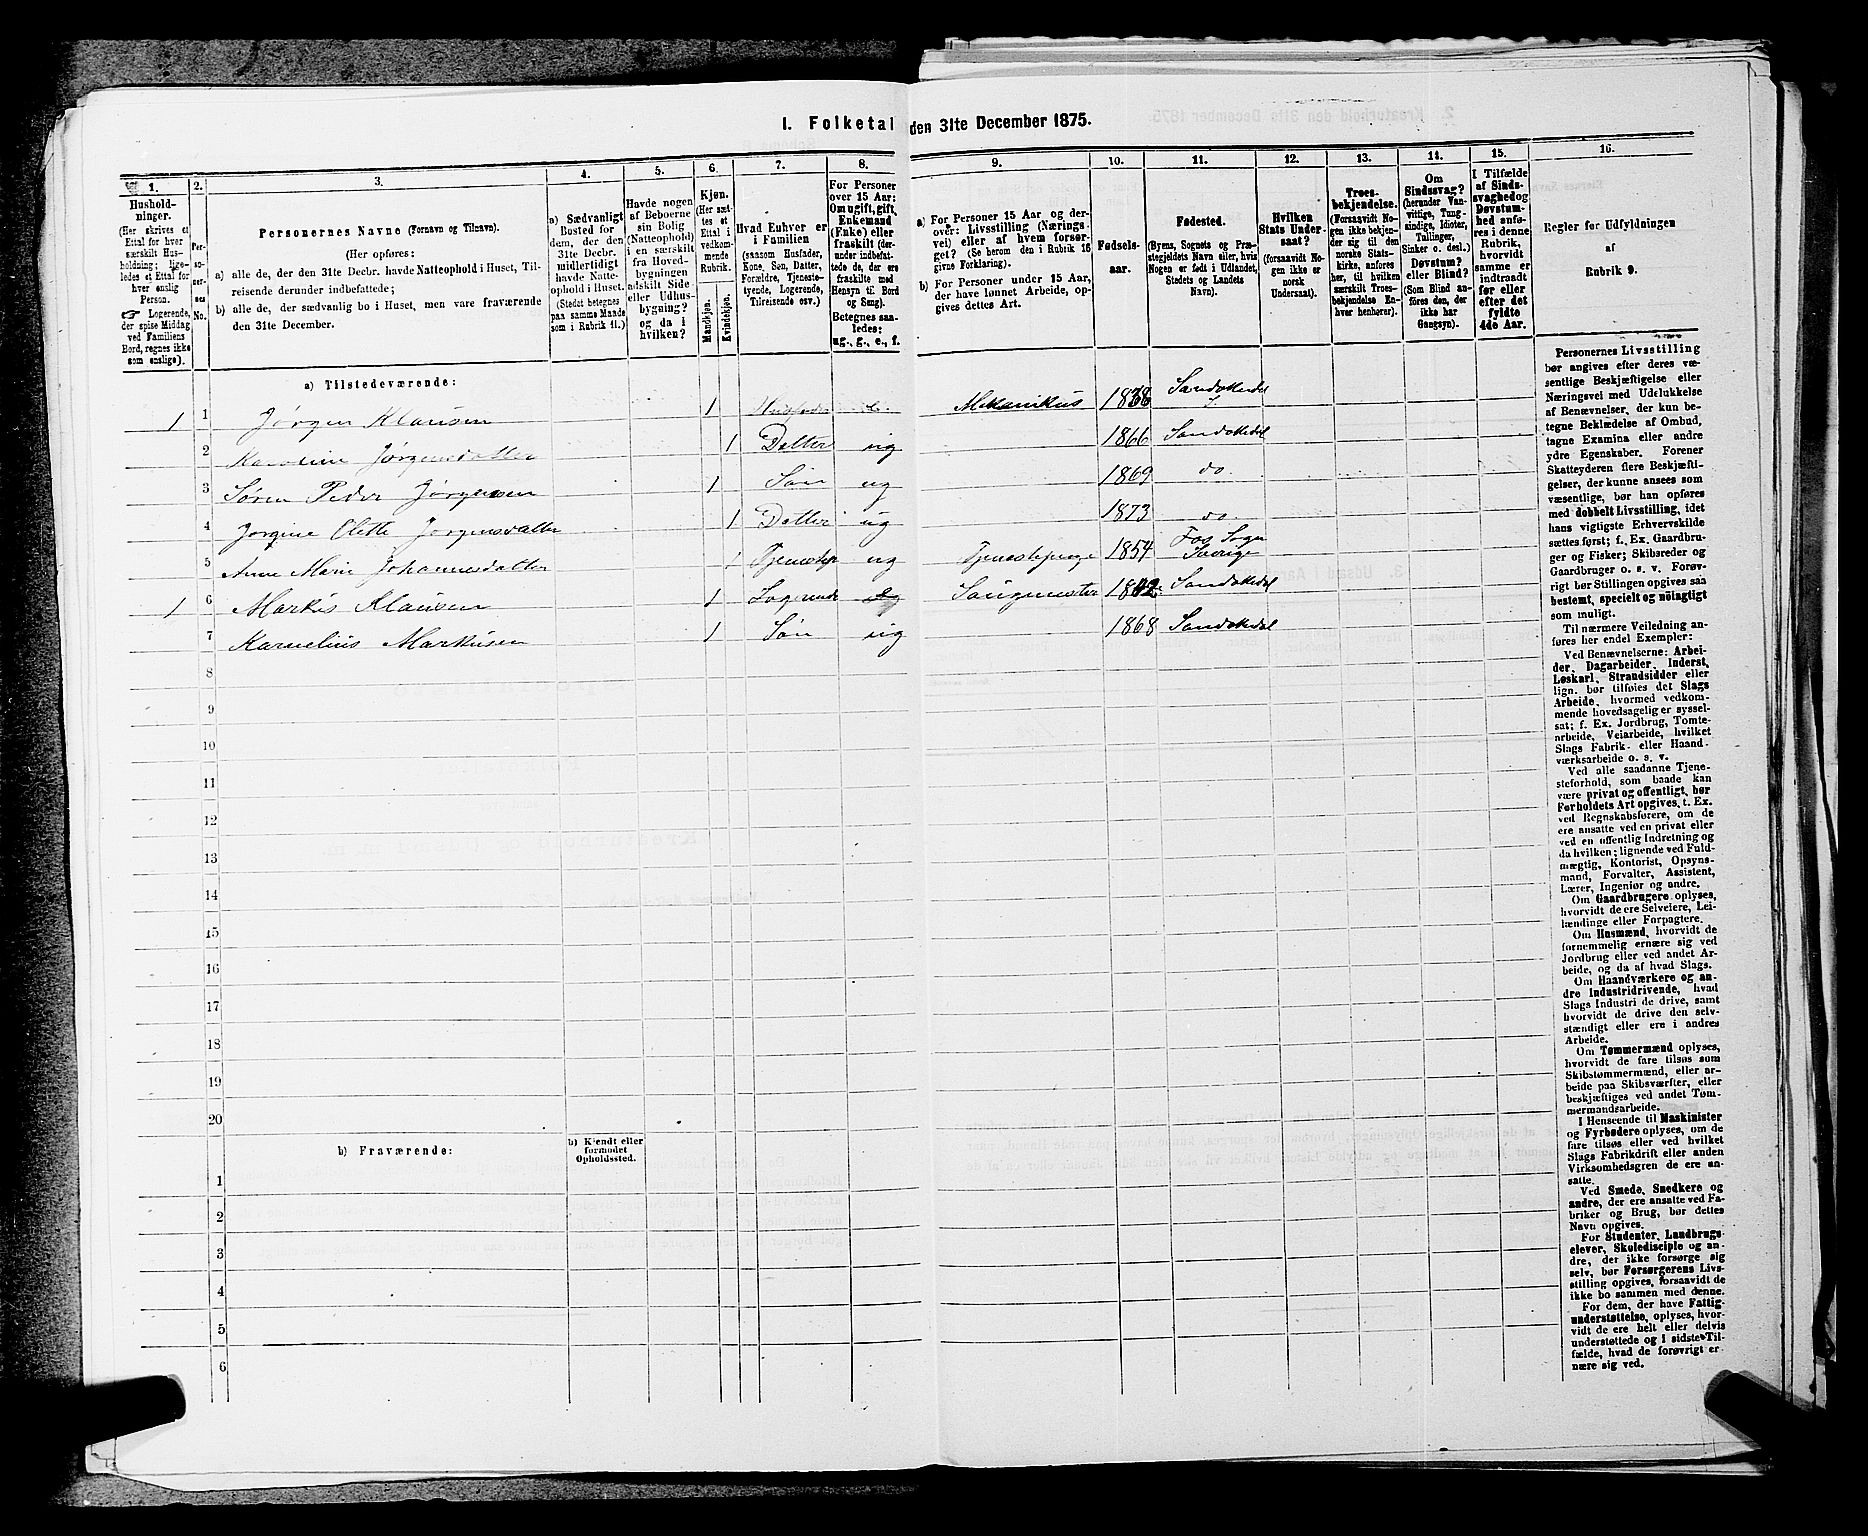 I. Folketal den 31te December 1875.
1. 2. 3. 4. 5. 6. 7. 8. 9. 10. 11. 12. 13. 14. 15. 16.
Hushold-
ninger.
(Her skrives et
Ettal for hver
særskilt Hus-
holdning; lige-
ledes et Ettal for
hver enslig
Person.
☞ Logerende,
der spise Middag
ved Familiens
Bord, regnes ikke
som enslige).
Per-
so-
ner-
nes
No.
Personernes Navne (Fornavn og Tilnavn).
(Her opføres:
a) alle de, der den 31te Decbr. havde Natteophold i Huset, Til-
reisende derunder indbefattede;
b) alle de, der sædvanlig bo i Huset, men vare fraværende
den 31te December.
a) Sædvanligt
Bosted for
dem, der den
31te Decbr.
midlertidigt
havde Natte-
ophold i Huset.
(Stedet betegnes
paa samme Maade
som i Rubrik 11.)
Havde nogen
af Beboerne
sin Bolig
(Natteophold)
i en særskilt
fra Hoved-
bygningen
adskilt Side
eller Udhus-
bygning?
og da i
hvilken?
Kjøn.
(Her sæt-
tes et
Ettal i
vedkom-
mende
Rubrik.
Mandkjøn.
Kvindekjøn.
Hvad Enhver er
i Familien
(saasom Husfader,
Kone, Søn, Datter,
Forældre, Tjeneste-
tyende, Logerende,
Tilreisende osv.)
For Personer
over 15 Aar:
Om ugift, gift,
Enkemand
(Enke) eller
fraskilt (der-
under indbefat-
tede de, der ere
fraskilte med
Hensyn til Bord
og Seng).
Betegnes saa-
ledes:
ug., g., e., f.
a) For Personer 15 Aar og der-
over: Livsstilling (Nærings-
vei) eller af hvem forsør-
get? (Se herom den i Rubrik 16
givne Forklaring).
b) For Personer under 15 Aar,
der have lønnet Arbeide, op-
gives dettes Art.
Fødsels-
aar.
Fødested.
(Byens, Sognets og Præ-
stegjeldets Navn eller, hvis
Nogen er født i Udlandet,
Stedets og Landets
Navn).
Hvilken
Stats Under-
saat?
(forsaavidt No-
gen ikke er
norsk
Undersaat).
Troes-
bekjendelse.
(Forsaavidt No-
gen ikke bekjen-
der sig til den
norske Stats-
kirke, anføres
her, til hvilken
særskilt Troes-
bekjendelse En-
hver henhører).
Om
Sindssvag?
(herunder Van-
vittige, Tung-
sindige, Idioter,
Tullinger,
Sinker o. desl.)
Døvstum?
eller Blind?
(Som Blind an-
føres den, der
ikke har
Gangsyn).
I Tilfælde
af Sinds-
svaghed og
Døvstum-
hed anfø-
res i denne
Rubrik,
hvorvidt
samme er
indtraadt
før eller
efter det
fyldte
4de Aar.
Regler for Udfyldningen
af
Rubrik 9.
a) Tilstedeværende:
1 1 Jørgen Klausen 1 Husfader e. Mekanikus 1838 Sandøkedal
2 Karoline Jørgensdatter 1 Datter ug 1866 Sandøkedal
3 Søren Peder Jørgensen 1 Søn ug 1869 do.
4 Jørgine Olette Jørgensdatter 1 Datter ug 1873 do.
5 Anne Marie Johannesdatter 1 ug 1854 Fos Sogn Sverige
1 6 Markus Klausen 1 Logerende Saugmester Sandøkedal
7 Karnelius Markusen 1 Søn ug 1868 Sandøkedal
8
9
10
11
12
13
14
15
16
17
18
19
20
b) Fraværende:
b) Kjendt eller
formodet
Opholdssted.
1
2
3
4
5
6
Personernes Livsstilling
bør angives efter deres væ-
sentlige Beskjæftigelse eller
Næringsvei med Udelukkelse
af Benævnelser, der kun be-
tegne Beklædelse af Ombud,
tagne Examina eller andre
ydre Egenskaber. Forener
Skatteyderen flere Beskjæfti-
gelser, der kunne ansees som
væsentlige, bør han opføres
med dobbelt Livsstilling, idet
hans vigtigste Erhvervskilde
sættes først; f. Ex. Gaardbru-
ger og Fisker; Skibsreder og
Gaardbruger o. s. v. Forøv-
rigt bør Stillingen opgives saa
bestemt, specielt og nøiagtigt
som muligt.
Til nærmere Veiledning an-
føres her endel Exempler:
Ved Benævnelserne: Arbei-
der, Dagarbeider, Inderst,
Løskarl, Strandsidder eller
lign. bør tilføies det Slags
Arbeide, hvormed vedkom-
mende hovedsagelig er syssel-
sat; f. Ex. Jordbrug, Tomte-
arbeide, Veiarbeide, hvilket
Slags Fabrik- eller Haand-
værksarbeide o. s. v.
Ved alle saadanne Tjene-
steforhold, som baade kan
være privat og offentligt, bør
Forholdets Art opgives, t. Ex.
ved Regnskabsførere, om de
ere ansatte ved en privat eller
ved en offentlig Indretning og
da hvilken; lignende ved Fuld-
mægtig, Kontorist, Opsyns-
mand, Forvalter, Assistent,
Lærer, Ingeniør og andre.
Om Gaardbrugere oplyses,
hvorvidt de ere Selveiere, Lei-
lændinge eller Forpagtere.
Om Husmænd, hvorvidt de
fornemmelig ernære sig ved
Jordbrug eller ved andet Ar-
beide, og da af hvad Slags.
Om Haandværkere og an-
dre Industridrivende, hvad
Slags Industri de drive, samt
hvorvidt de drive den selv-
stændigt eller ere i andres
Arbeide.
Om Tømmermænd oplyses,
hvorvidt de fare tilsøs som
Skibstømmermænd, eller ar-
beide paa Skibsværfter, eller
beskjæftiges ved andet Tøm-
mermandsarbeide.
I Henseende til Maskinister
og Fyrbødere oplyses, om de
fare tilsøs eller ved hvilket
Slags Fabrikdrift eller anden
Virksomhedsgren de ere an-
satte.
Ved Smede, Snedkere og
andre, der ere ansatte ved Fa-
briker og Brug, bør dettes
Navn opgives.
For Studenter, Landbrugs-
elever, Skoledisciple og an-
dre, der ikke forsørge sig
selv, bør Forsørgerens Livs-
stilling opgives, forsaavidt de
ikke bo sammen med denne.
For dem, der have Fattig-
understøttelse, oplyses, hvor-
vidt de ere helt eller delvis
understøttede og i sidste Til-
fælde, hvad de forøvrigt er-
nære sig ved.